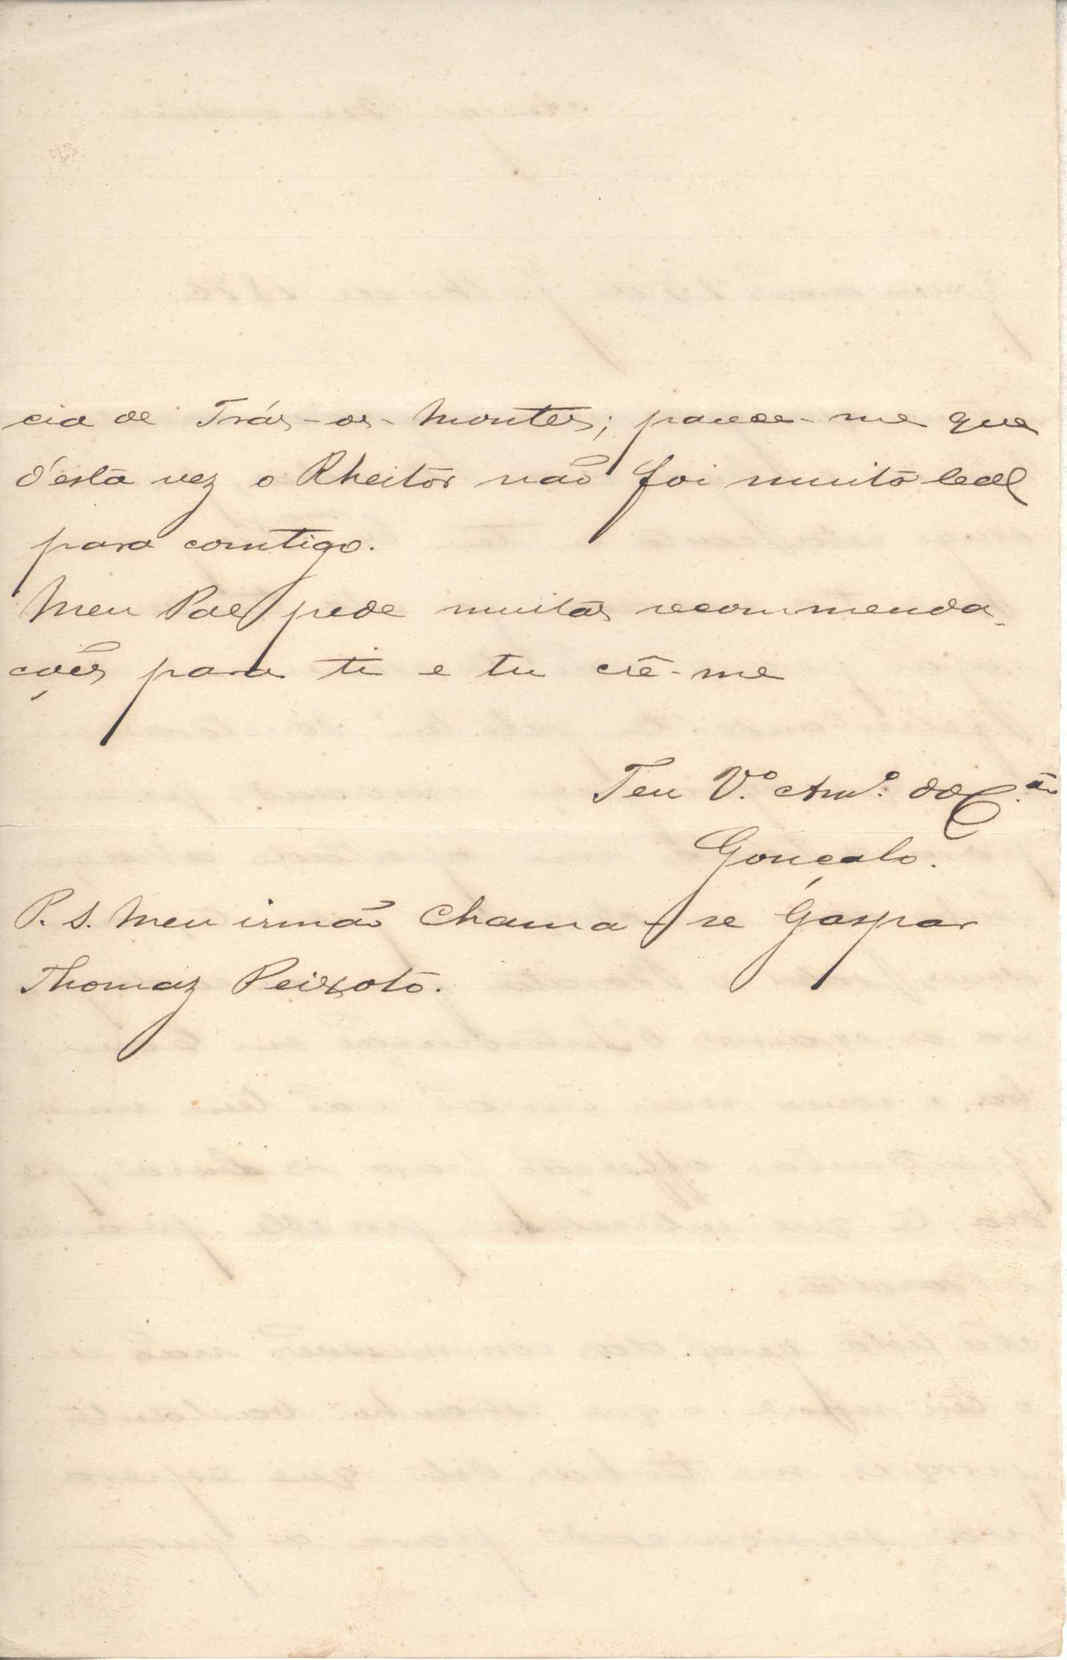 cia de Trás-os-Montes; parece-me que
d'esta vez o Rheitor não foi muito leal
para comtigo.
Meu Pae pede muitas recommenda-
ções para ti e tu crê-me
Teu V.º Am.º do C.ão
Gonçalo.
P. S. Meu irmão chama-se Gaspar
Thomaz Peixoto.